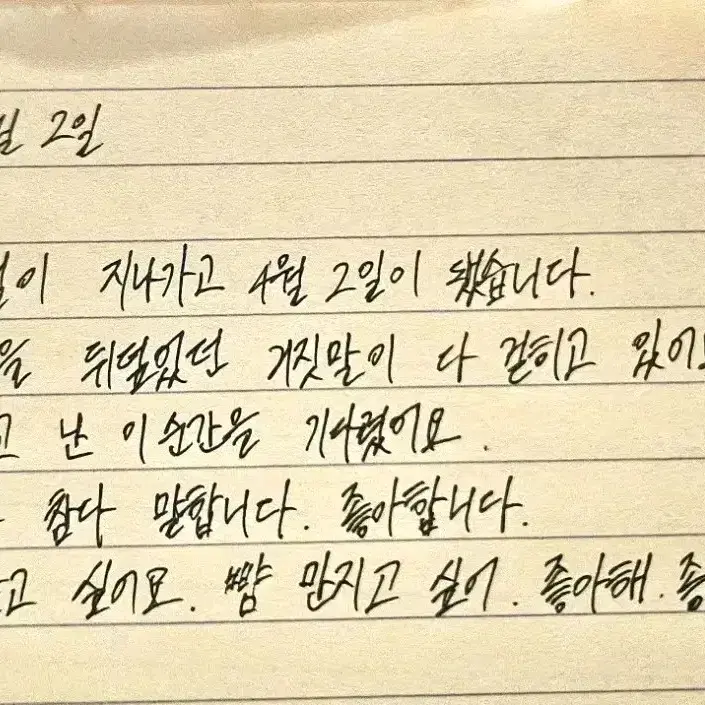 월 2일
절이 지나가고 4월 2일이 됐습니다.
을 뒤덮었던 거짓말이 다 걷히고 있어
고 난 이 순간을 기다렸어요.
참다 말합니다. 좋아합니다.
고 싶어요. 뺨 만지고 싶어. 좋아해. 좋